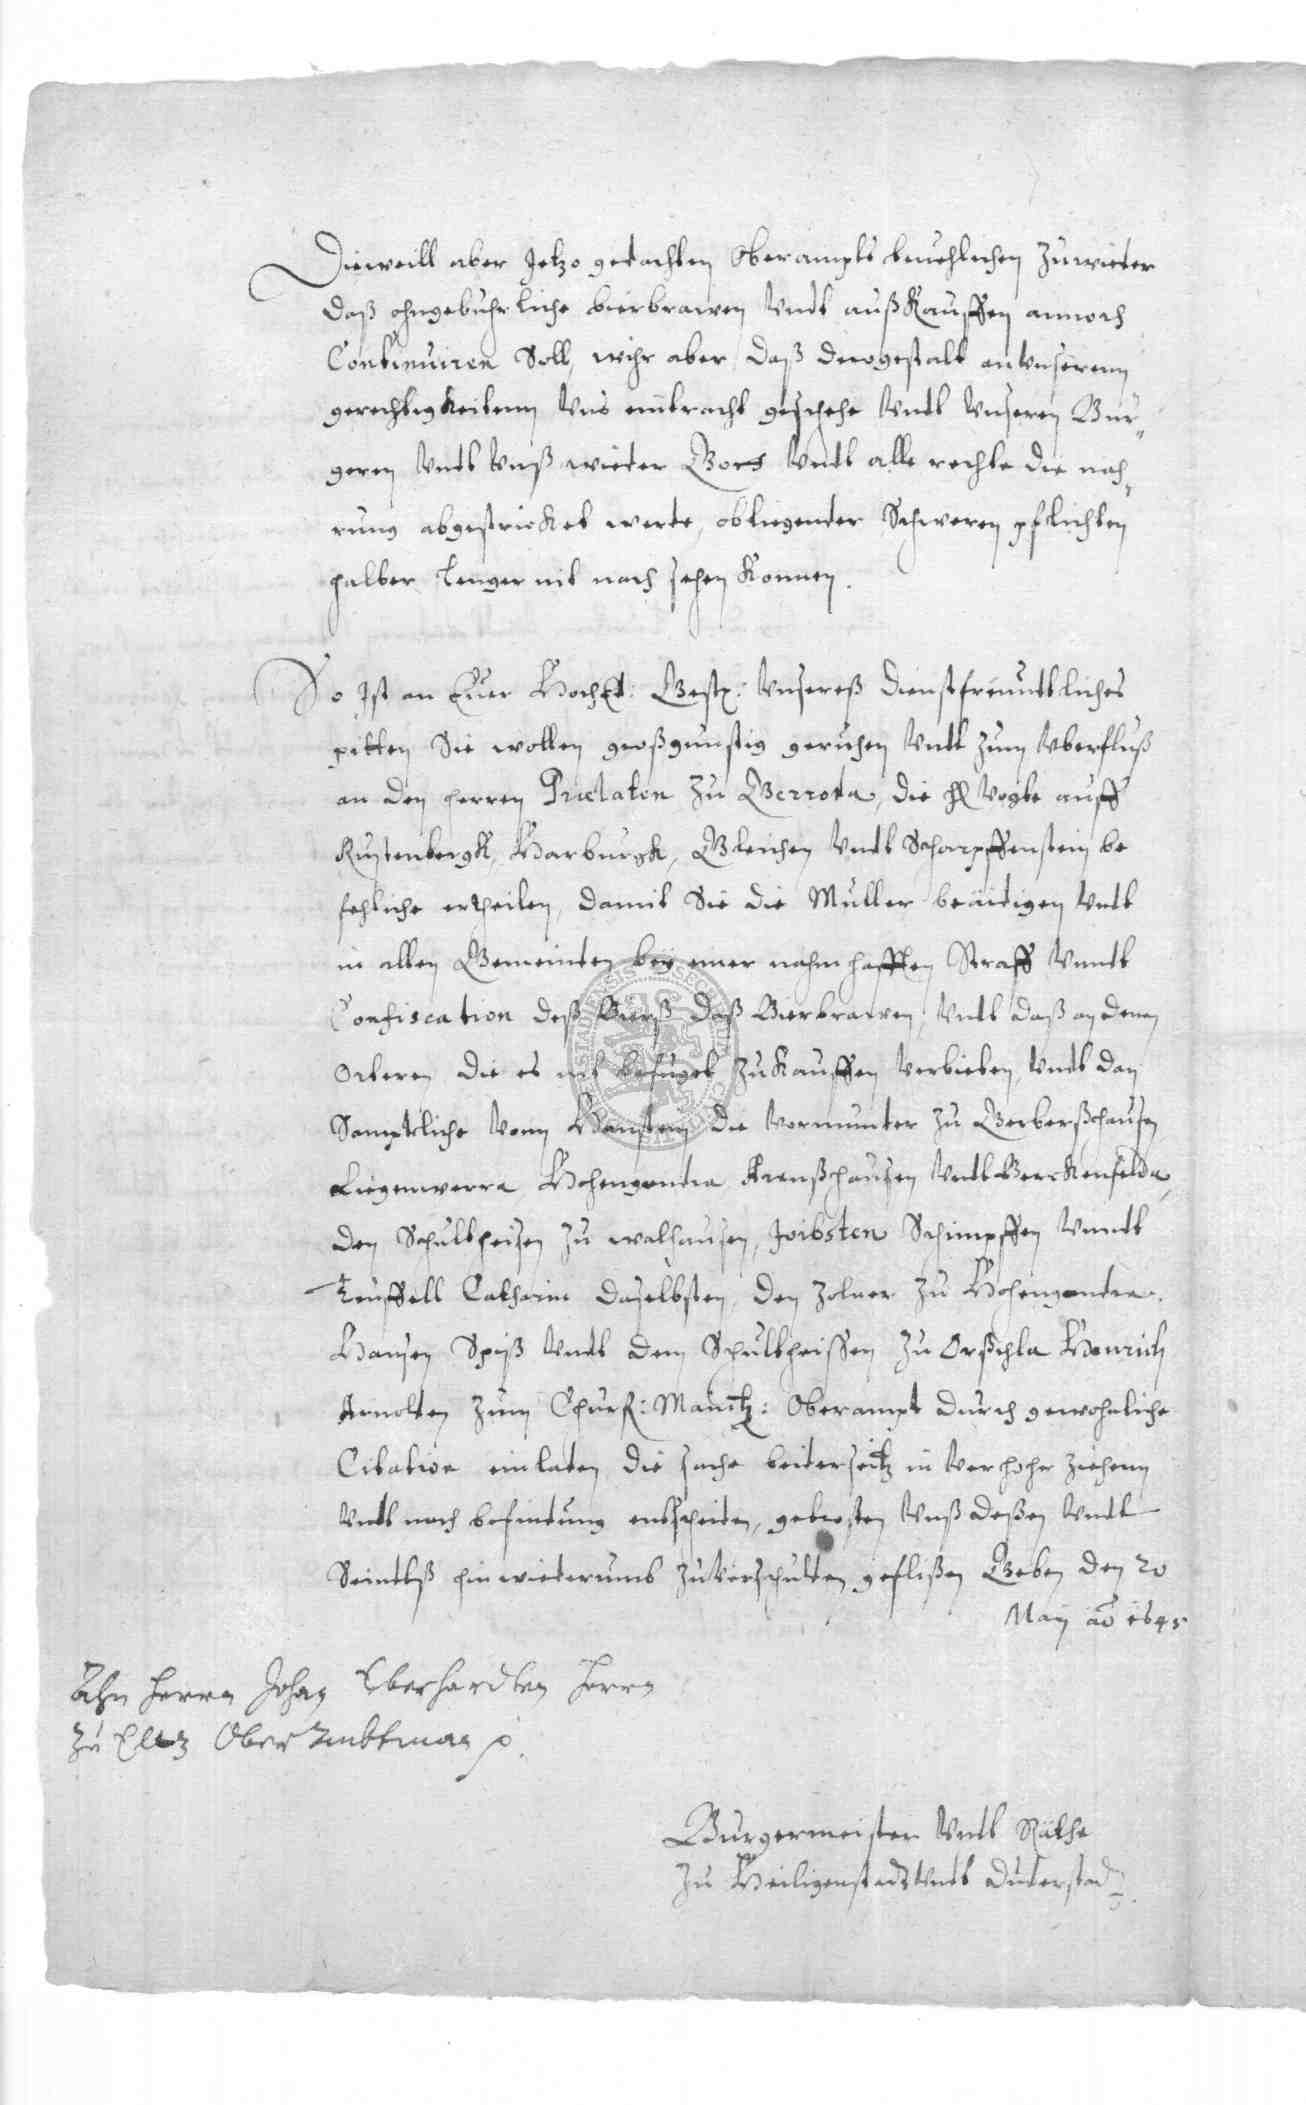 Dieweill aber Jetzo gedachten Oberampts beuehlichen zuwieder
daß ohngebuhrliche bierbrawen Undt außkauffen annoch
Continuiren Soll, wihr aber daß dergestalt an Unserenn
gerechtigkeitenn Uns eintracht geschehe Undt Unseren Bur„
geren Undt Unß wieder Undt alle rechte die nah„
rung abgestricket werde, obliegender Schweren pflichten
halber lenger nit nach sehen konnen.
So Ist an Euer HochEd: Gestr: Unsereß dienstfreuntliches
pitten Sie wollen großgunstig geruhen Undt zum Uberfluß
an den herren Prælaten zu Gerroda, die HH Vogte auff
Rustenbergk, Harburgk, Gleichen Undt Scharpffenstein be
fehliche ertheilen, damit Sie die Muller beäidigen Undt
in allen Gemeinden bey einer nahmhafften Straff Unndt
Confiscation deß Bierß daß Bierbrawen, Undt daß an denen
Orteren die es nit befuget zukauffen verbieten, Undt dan
Samptliche Vonn Hanstein die Vormunder zu Gerberßhausen
Liegenwerra Hohengandra Arenßhausen Undt Berckenfelda,
den Schultheisen zu walhausen, Schimpffen Unndt
Teuffell Catharin daselbsten, den Zolner zu Hohengandra.
Hansen Spiß Undt dem Schultheissen zu Orßhla Henrich
Arnolten zum Churf: Maintz: Oberampt durch gewohnliche
Citation einladen die sache beiderseitz in Verhohr ziehenn
Undt nach befindung entscheiden, getrosten Unß deßen Undt
Seindtß hinwiederumb zuverschulden geflißen Geben den 20
Maij aõ 1645
Ahn Herrn Johan Eberhardten Herrn
zu Eltz Ober Ambtman p.
Burgermeister Undt Räthe
zu Heiligenstadt Undt Duderstad